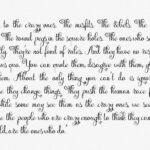 to the crazy ones. The misfits. The rebels. The
The round pegs in the square holes. The ones who s
ly. They're not fond of rules. And they have no res
us quo. You can quote them, disagree with them, gl
them. About the only thing you can't do is ignor
e they change things. They push the human race f
while some may see them as the crazy ones, we se
e the people who are crazy enough to think they can
ld, are the ones who do."